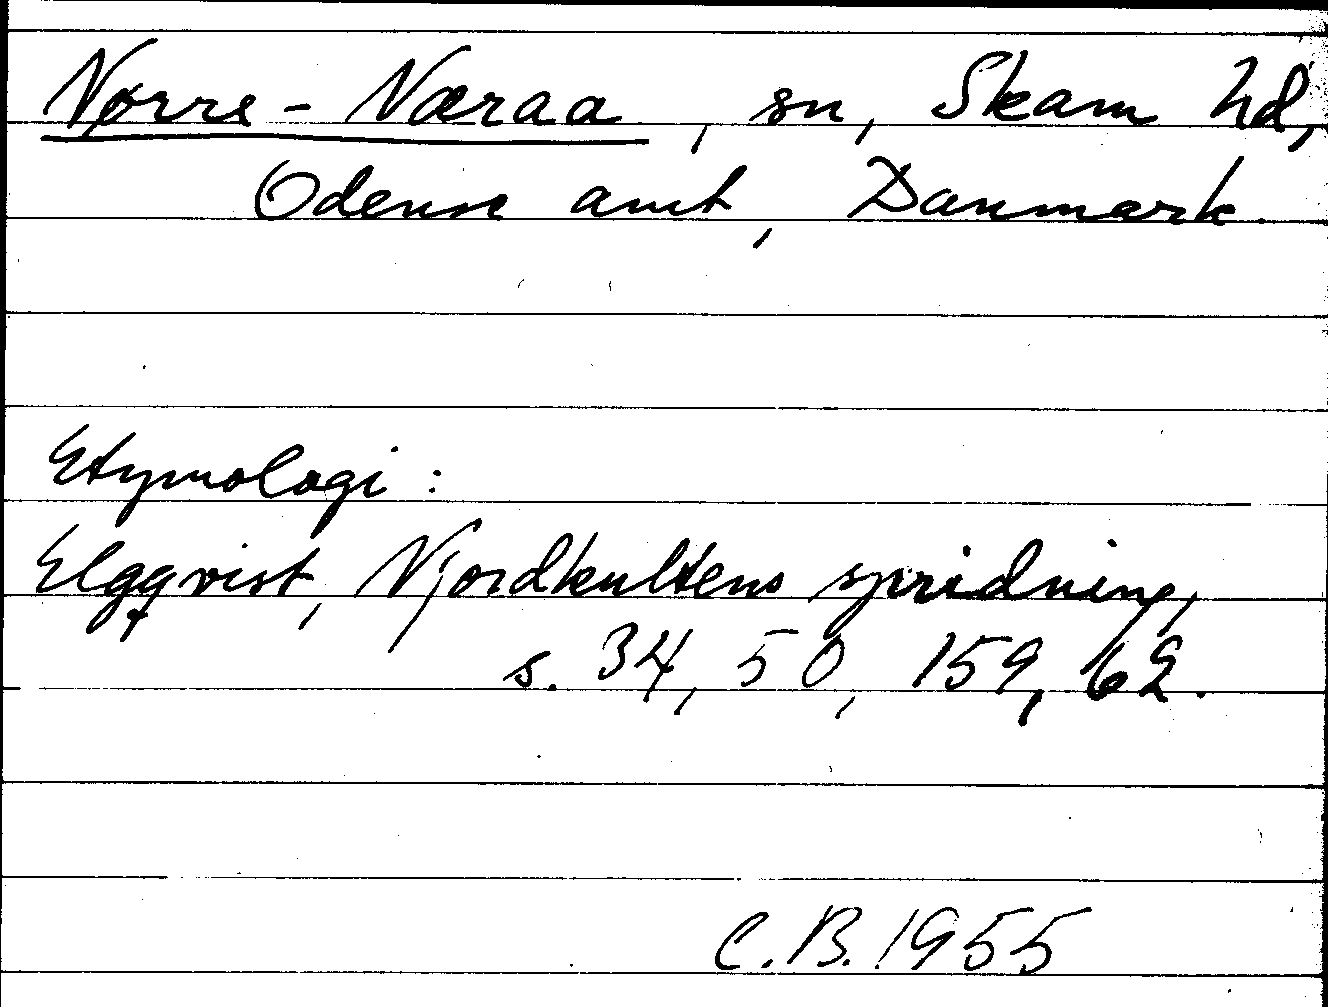 Nørre-Næraa, sn, Skam hd,
Odense amt, Danmark.
Etymologi:
Elgqvist, Njordkultens spridning,
s. 34, 50, 159, 62.
C.B. 1955